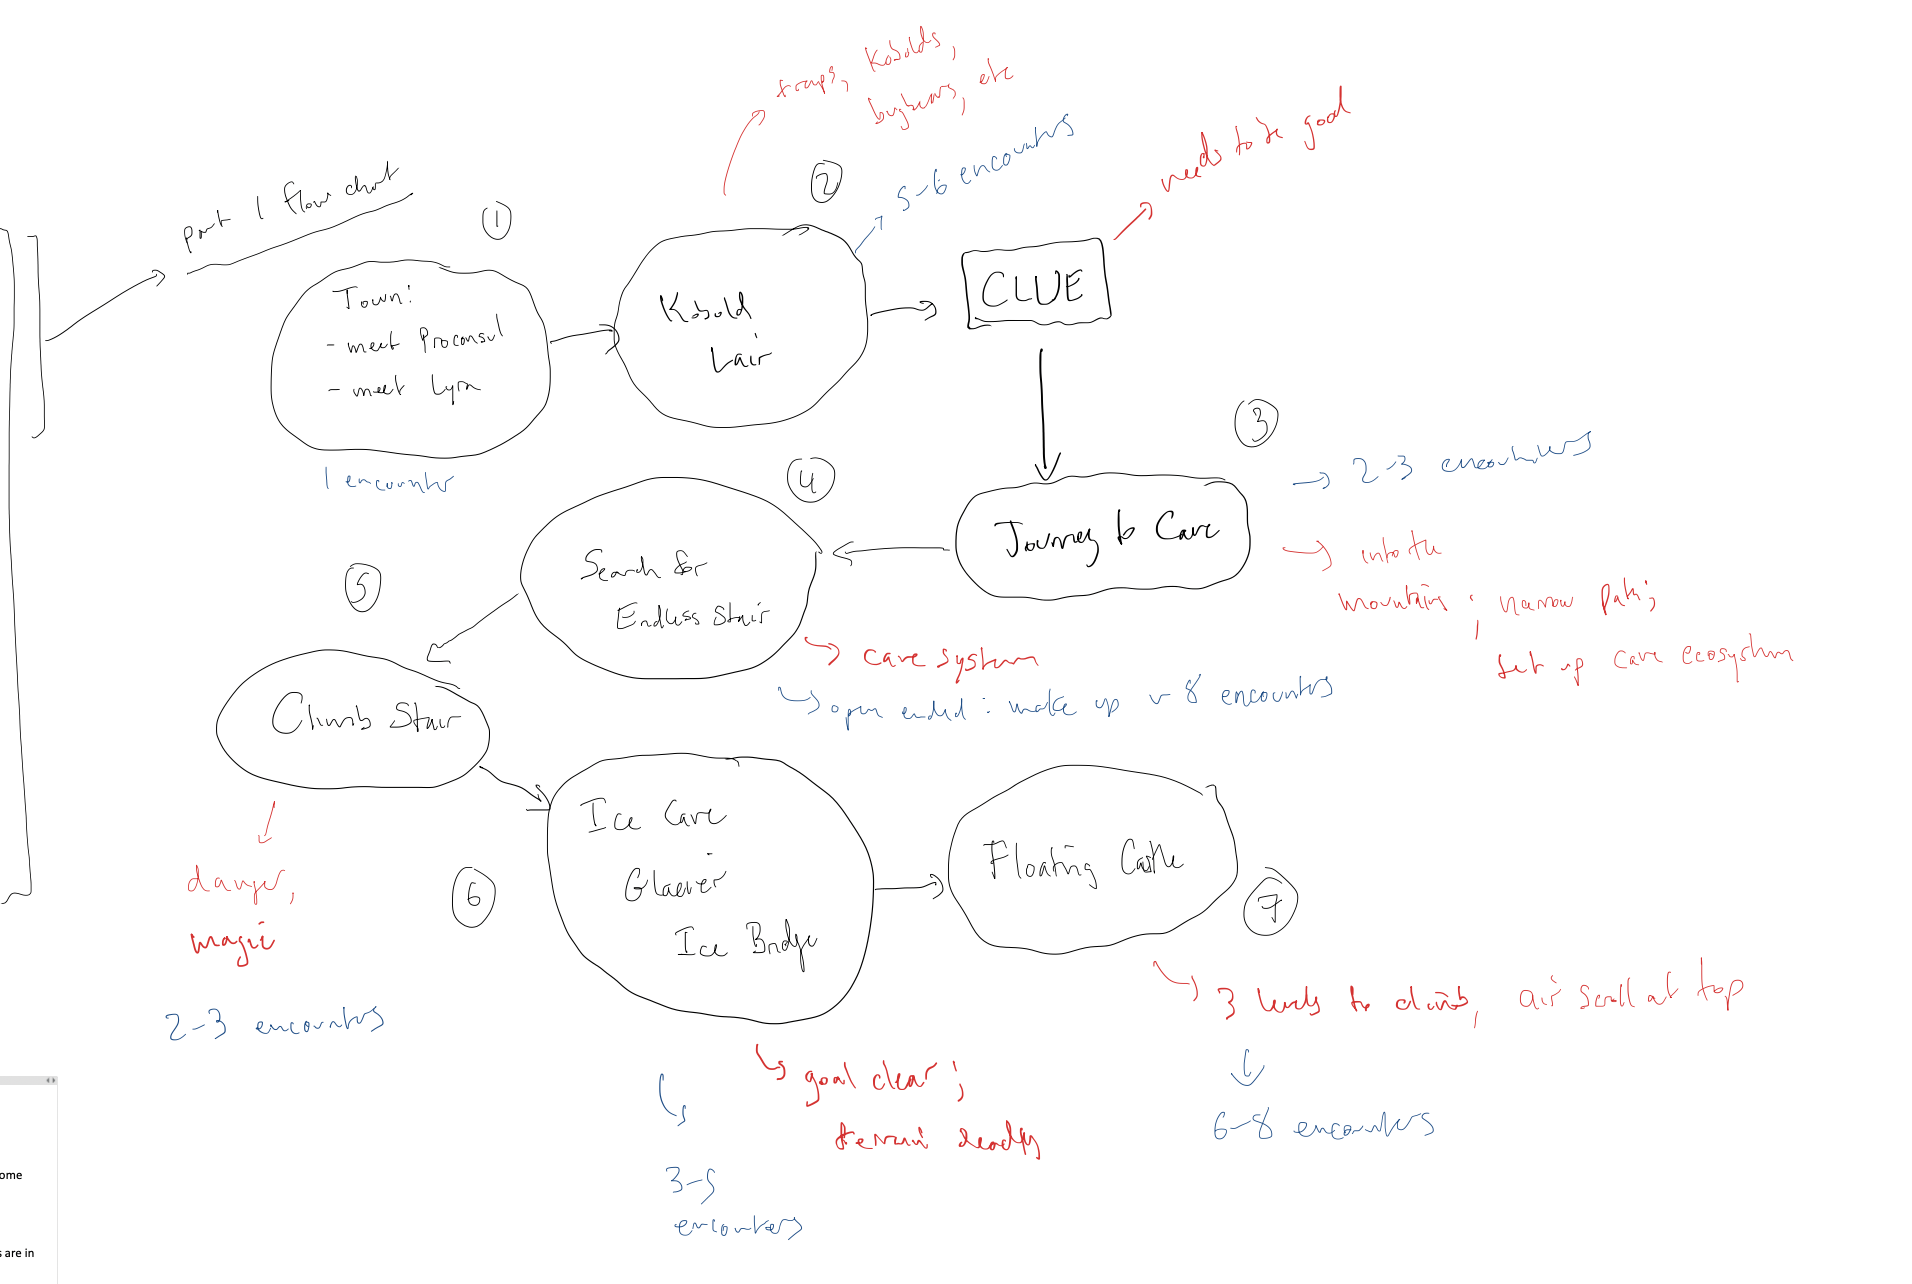 part 1 flow chart
①
Town:
- meet Proconsul
- meet Lyra
1 encounter
traps, Kobolds,
bugbears, etc
②
5-6 encounters
Kobold
Lair
CLUE
needs to be good
③
Journey to Cave
2-3 encounters
into the
mountains; narrow path;
set up cave ecosystem
④
Search for
Endless Stair
cave system
open ended: make up ~ 8 encounters
⑤
Climb Stair
danger,
magic
2-3 encounters
⑥
Ice Cave
Glacier
Ice Bridge
goal clear;
terrain deadly
3-5
encounters
Floating Castle
⑦
3 levels to climb, air scroll at top
6-8 encounters
ome
s are in